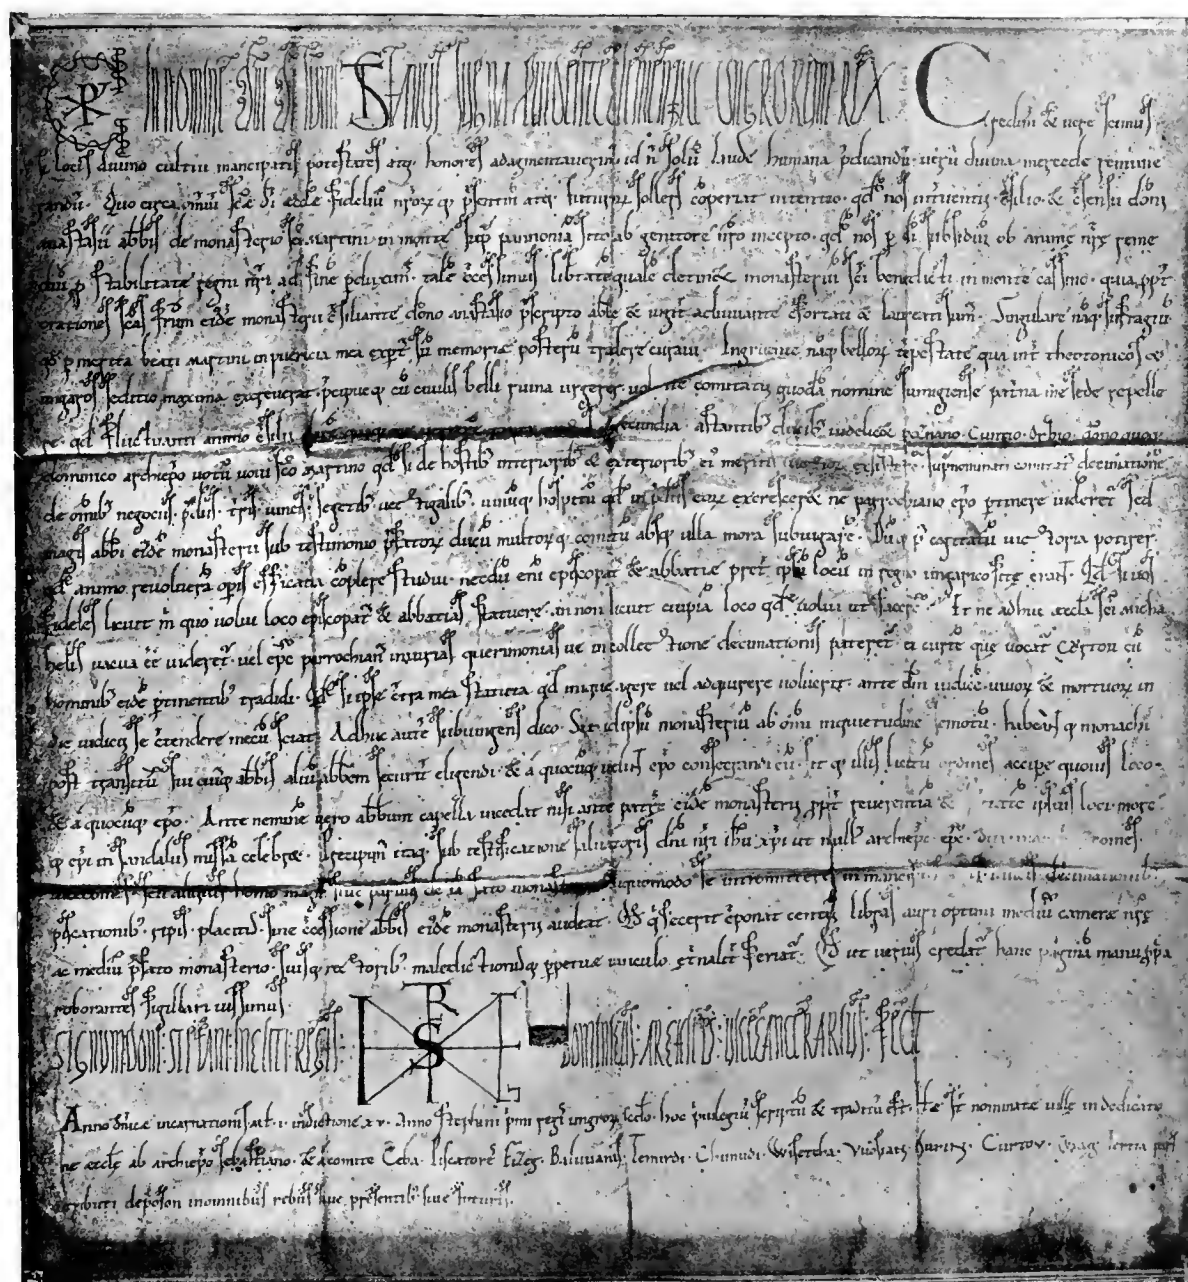 IN NOMINE DNI DI SUMMI STEPHANUS SUPNA PVIDENTE CLEMENTIA UNGRORUM REX Credim & vere scimus
si locis divino cultui mancipatis potestates atq honores adaugmentaverim. id n solu laude humana pdicandu. veru divina mercede remune
randu. Quo circa omiu sce di eccle fideliu nrorq psentiu atq futuroru sollers coperiat intentio. qd nos intventu csilio & csensu domi
anastasii abbis de monasterio sci martini in monte sup pannonia sito ab genitore nro incepto. qd nos p di subsidiu ob anime nre reme
diu p stabilitate regni nri ad fine pduxim. tale ccessimus libtate quale detinet monasteriu sci benedicti in monte cassino. quia ppt
orationes scas frum eide monasterii csiliante domno anastasio pscripto abbe & iugit adiuvante cfortati & laureati sum. Singulare naq suffragiu
qd p merita beati martini in puericia mea expt su memorie posteru tradere curavi. Ingruente naq bellor tepestate qua int theotonicos &
ungaros seditio maxima excreverat. pcipueq cu civilis belli ruina urgerer. volente comitatu quoda nomine sumigiense patna me sede repelle
re. qd fluctuanti animo csilii secundia. astantib ducib videlic& poznano. Cuntio. Orzio. domno quoq
dominico archiepo votu vovi sco martino. qd si de hostib interiorib & exteriorib ei merito victor existere. supnominati comitat decimatione
de omib negociis. pdiis. tris. vineis. segetib. vectigalib. vinuq hospitu qd in pdiis eor excrescer& ne parrochiano epo ptinere videret sed
magis abbi eide monasterii sub testimonio pfator ducu multorq comitu absq ulla mora subiugare. Duq p cogitatu victoria potirer
qd animo revolvera opis efficatia coplere studui. necdu eni episcopat & abbatie pret ipsu locu in regno ungarico site erant. Qd si vos
fideles licuit in quo volui loco episcopat & abbatias statuere. an non licuit cuipia loco qd volui ut facere. Et ne adhuc ecclia sci micha
helis vacua ee videret. vel epc parrochian iniurias querimonias ve in collectione decimationis pateret. ei curte que vocat Cortov cu
hominib eide ptinentib tradidi. Qd si ipse ctra mea statuta qd inique agere vel adquirere voluerit. ante dm iudice vivor & mortuor in
die iudicii se ctendere mecu sciat. Adhuc aute subiungens dico. Sit idipsu monasteriu ab omi inquietudine semotu. habeantq monachi
post transitu sui cuiq abbis aliu abbem securit eligendi. & a quocuq velint epo consecrandi eu. sitq illis licitu ordines accipe quovis loco.
& a quocuq epo. Ante nemine vero abbum capella incedat nisi ante patre eide monasterii ppt reverentia & ipsius loci. more
q epi in sandaliis missa celebr&. Precipim itaq sub testificatione salvatoris dni nri ihu xpi ut null archiepc. epc. dux. comes.
vicecomes. seu aliquis homo magn sive parvus de ia fato monasterio aliquomodo se intromittere in decimationib
piscationib. ripis. placitis. sine ccessione abbis eide monasterii audeat. Et q fecerit cponat centu libras auri optimi mediu camere nre
ac mediu pfato monasterio. suisq rectorib maledictionisq ppetue vinculo eternalit feriat. Et ut verius credat hanc pagina manu ppa
roborantes sigillari iussimus.
SIGNUM DOMNI STEPHANI INCLITI REGIS DOMINICUS AREPISCOPUS VICECANCELLARIUS FECIT
Anno dnice incarnationis mill. i. indictione xv. Anno stephani primi regis ungror scdo. hoc privilegiu scriptu & traditu est. He st nominate ville in dedicatio
ne eccle ab archiepo sebastiano. & a comite Ceba. Piscatores Fizeg. Balvvanis. Temirdi. Chimudi. Wisetcha. Curtov. Wag tertia pars
tributi de poson in omnibus rebus sive presentib sive futuris.